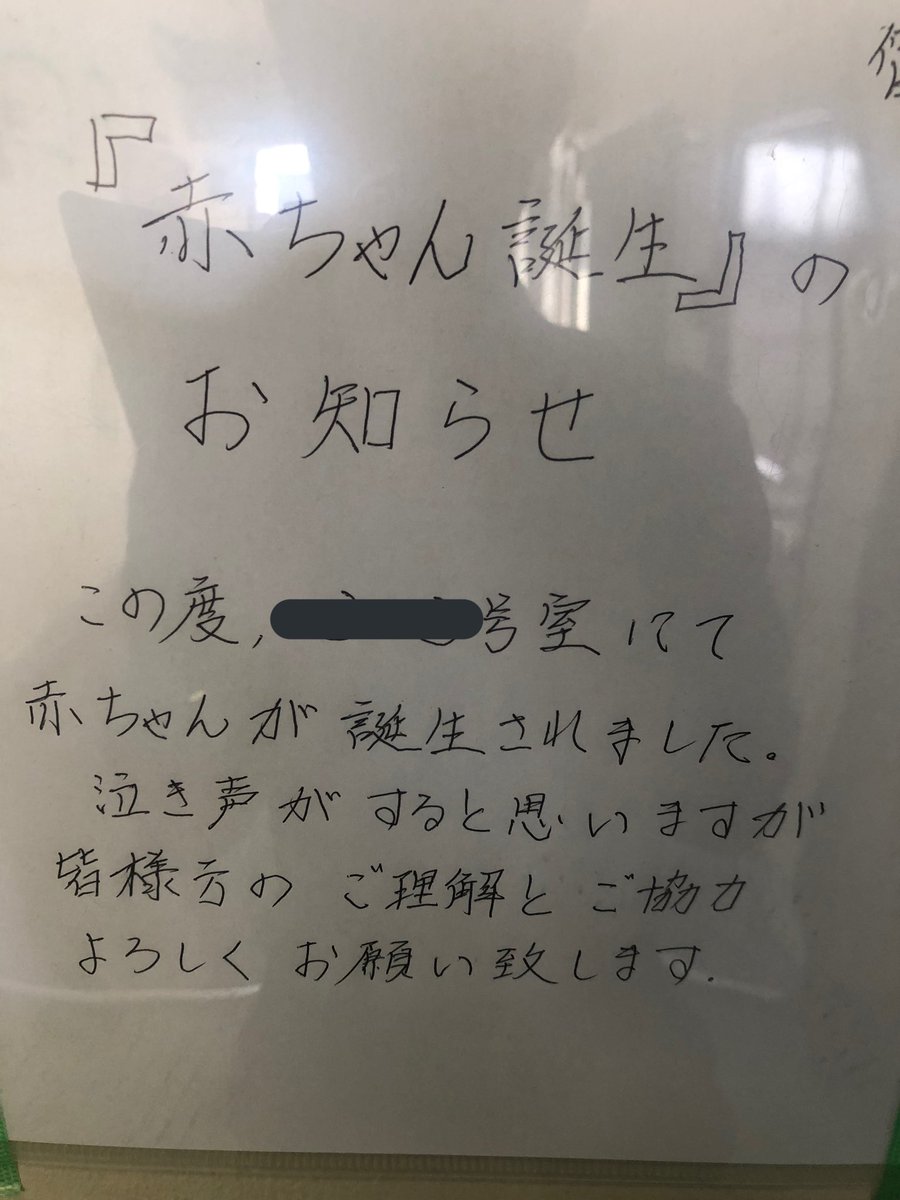 『赤ちゃん誕生』の
お知らせ
この度, 号室にて
赤ちゃんが誕生されました。
泣き声がすると思いますが
皆様方のご理解とご協力
よろしくお願い致します.